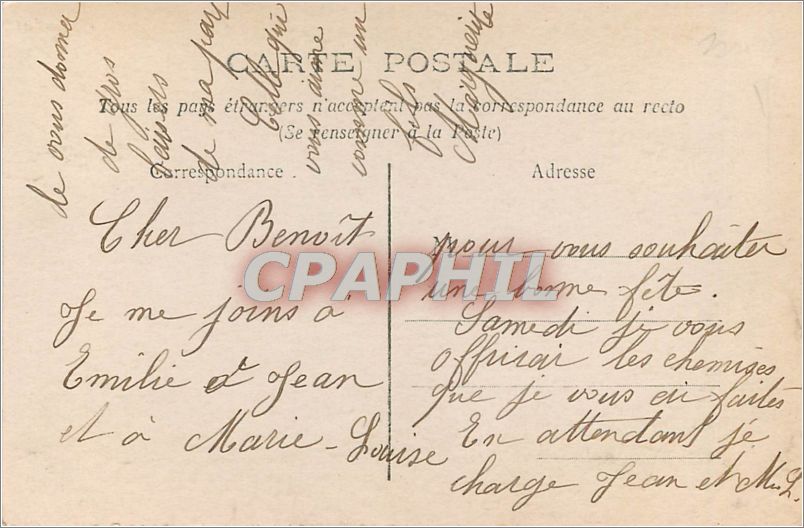 CARTE POSTALE
Tous les pays étrangers n'acceptent pas la correspondance au recto
(Se renseigner à la Poste)
Correspondance.
Adresse
Cher Benoît
Je me joins à
Emilie et Jean
et à Marie-Louise
pour vous souhaiter
une bonne fête.
Samedi je vous
offrirai les chemises
que je vous ai faites
En attendant je
charge Jean et M. L.
de vous donner
de gros
baisers
de ma part
Celle qui
vous aime
comme un
fils
Marguerite
CPAPHIL